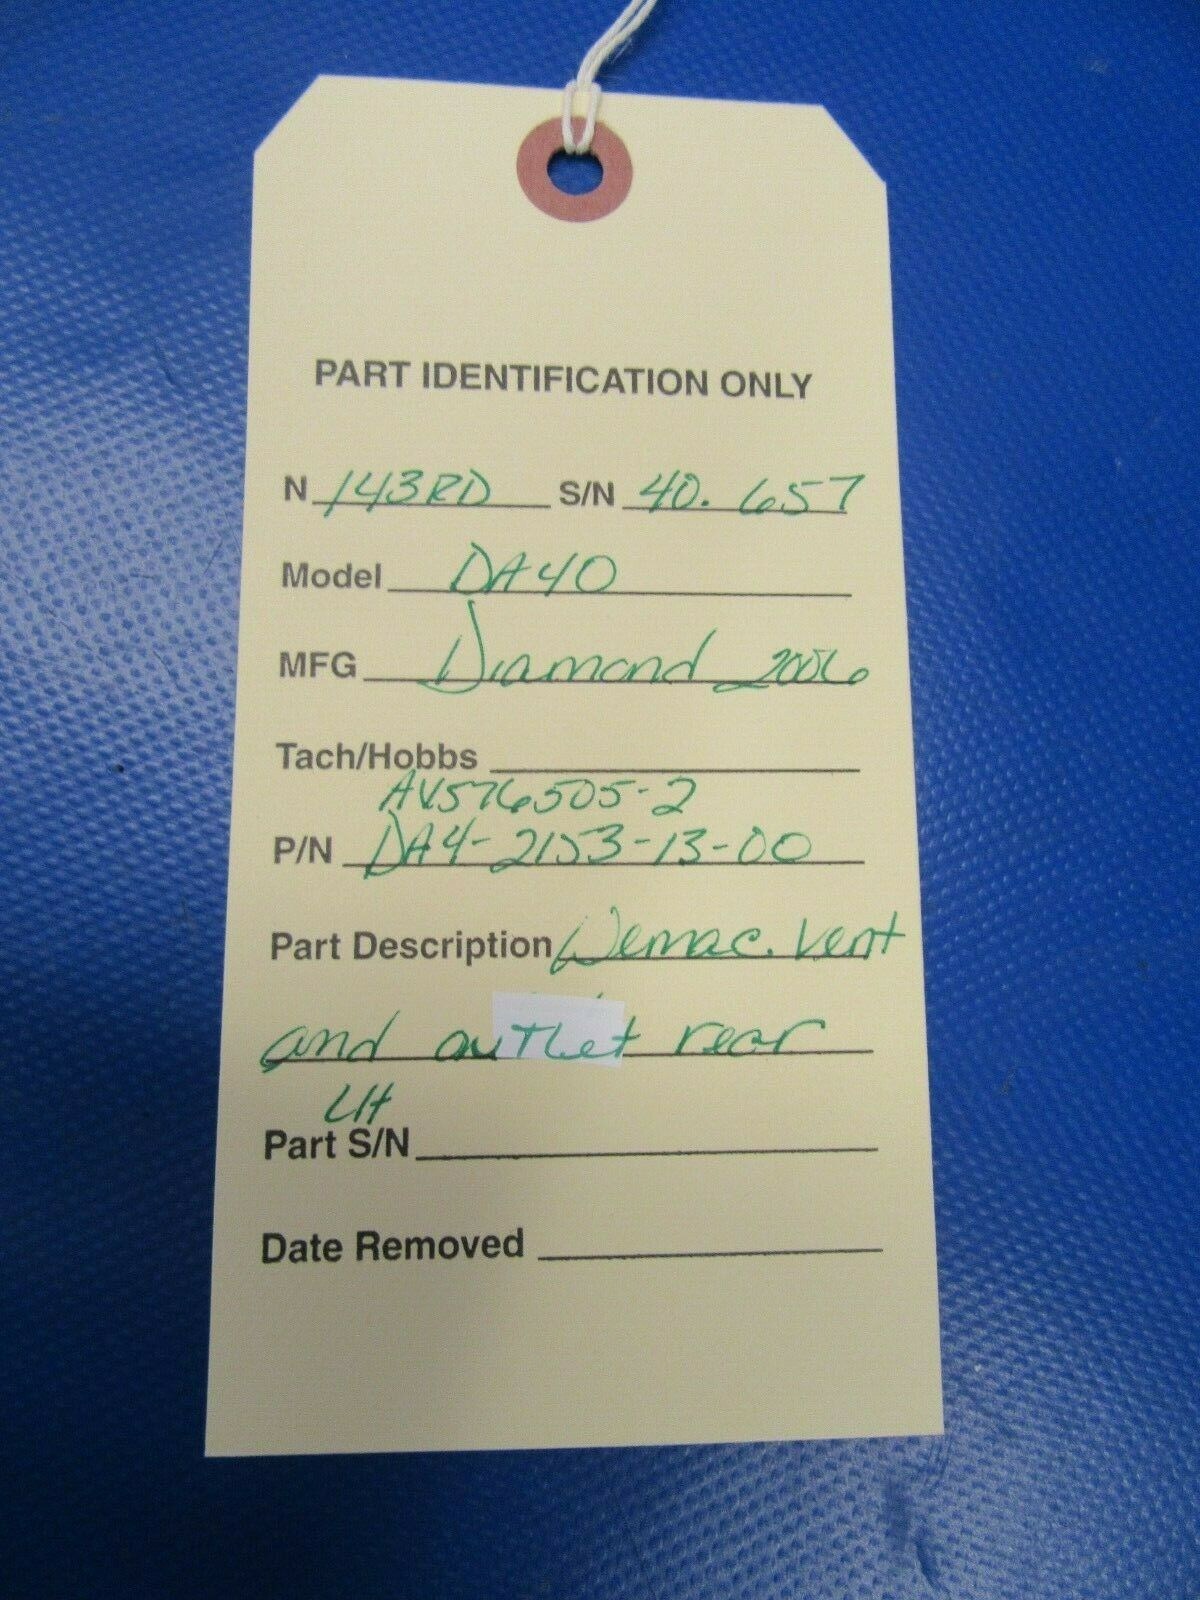 PART IDENTIFICATION ONLY
N 143RD S/N 40.657
Model DA40
MFG Diamond 2006
Tach/Hobbs
AV576505-2
P/N DA4-2153-13-00
Part Description Wemac. Vent
and outlet rear
LH
Part S/N
Date Removed